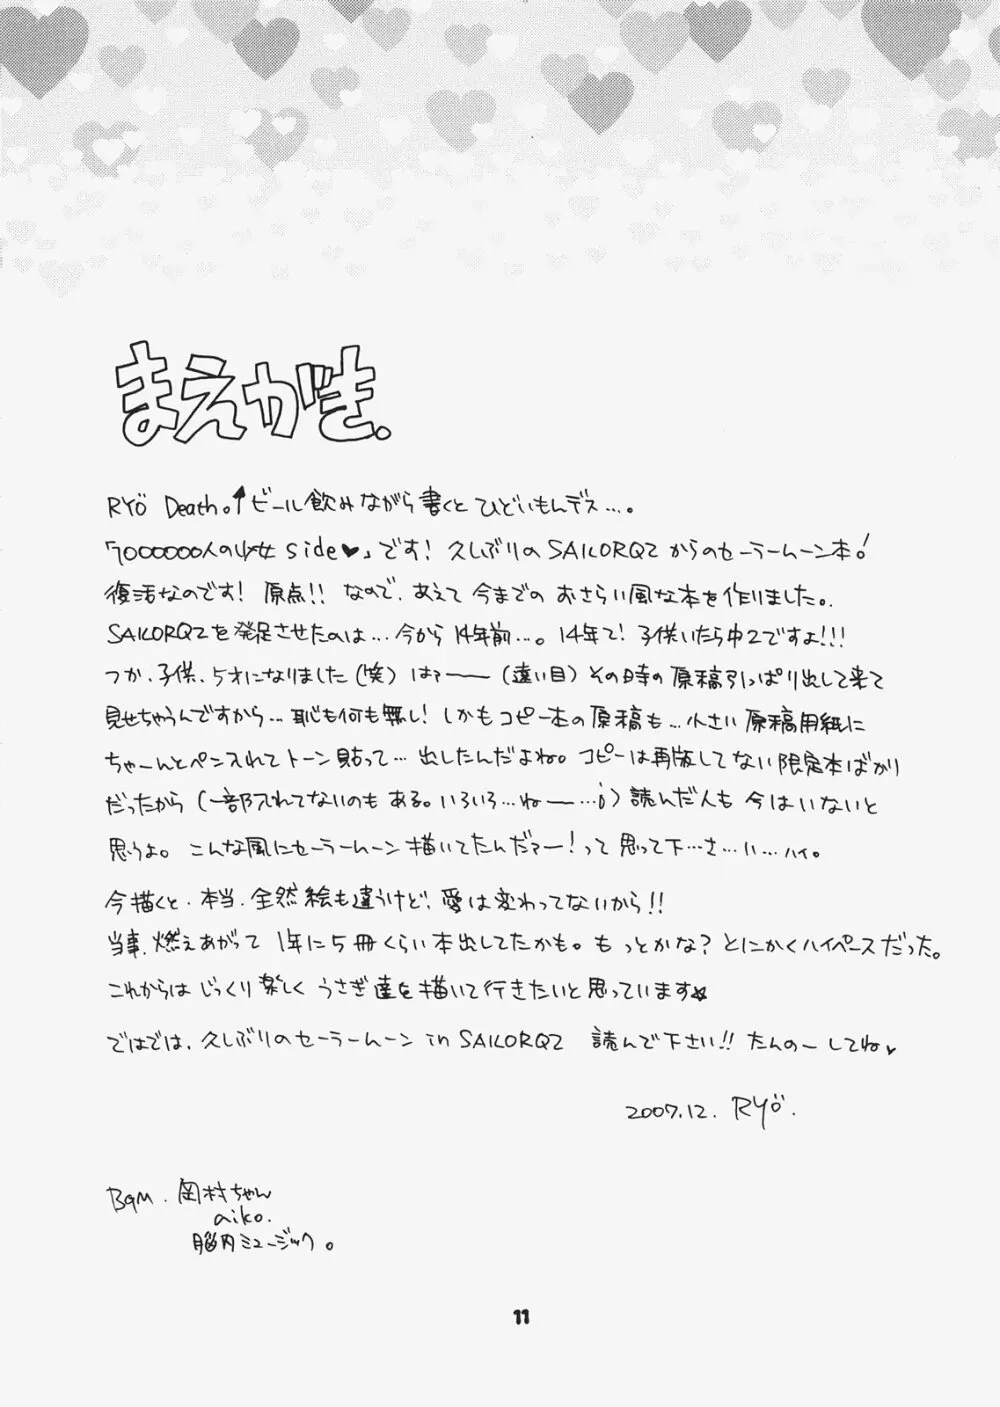 まえがき.
RYö Death。↑ビール飲みながら書くとひどいもんデス…。
「7000000人の少女 side♥」です! 久しぶりの SAILORQ2 からのセーラームーン本!
復活なのです! 原点!! なので、あえて今までのおさらい風な本を作りました。
SAILORQ2を発足させたのは…今から14年前…。14年て! 子供いたら中2ですよ!!!
つか、子供、5才になりました(笑) はァーー(遠い目) その時の原稿引っぱり出して来て
見せちゃうんですから…恥も何も無し! しかもコピー本の原稿も…小さい原稿用紙に
ちゃーんとペン入れてトーン貼って…出したんだよね。コピーは再版してない限定本ばかり
だったから (一部入れてないのもある。いろいろ…ねー…i) 読んだ人も今はいないと
思うよ。こんな風にセーラームーン描いてたんだァー!って思って下…さ…い…ハイ。
今描くと、本当、全然絵も違うけど、愛は変わってないから!!
当事、燃えあがって1年に5冊くらい本出してたかも。もっとかな? とにかくハイペースだった。
これからはじっくり楽しくうさぎ達を描いて行きたいと思っています☆
ではでは、久しぶりのセーラームーン in SAILORQ2 読んで下さい!! たんのーしてね♥
2007.12. RYö.
BGM. 岡村ちゃん
aiko.
脳内ミュージック。
11